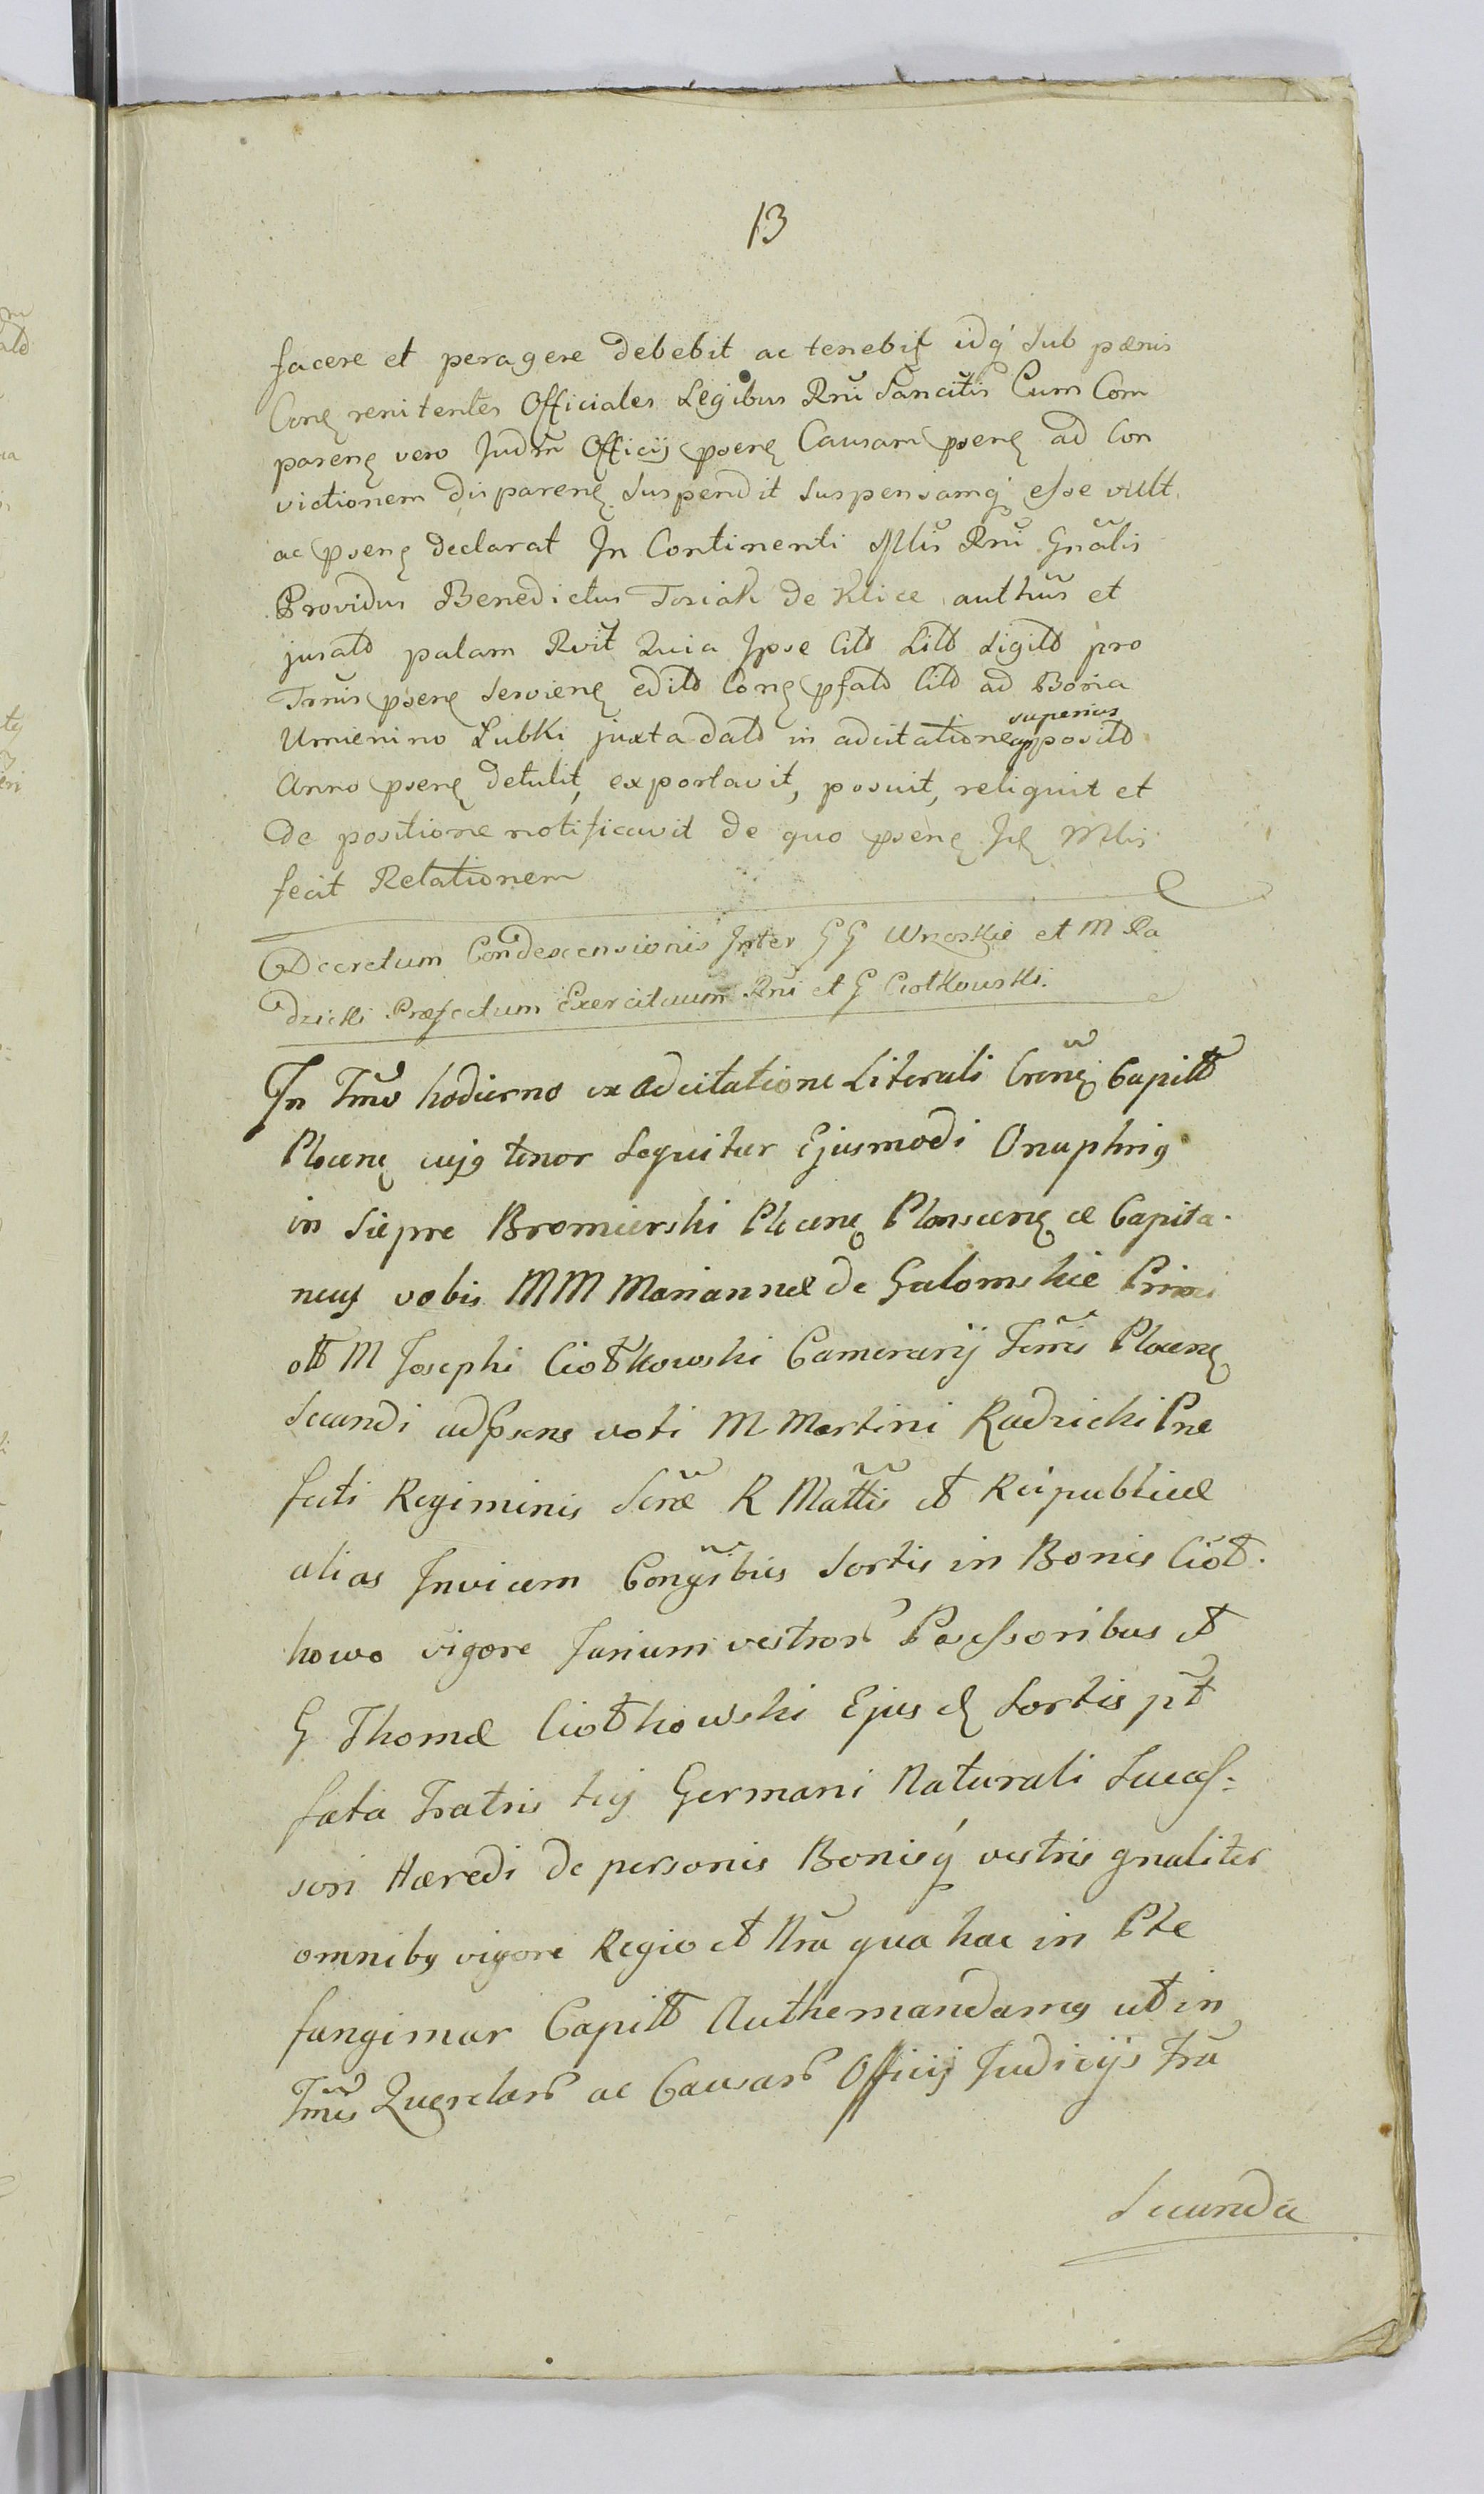 13
facere et peragere debebit ac tenebit idq́ sub pænis
Conȩ renitentes Officiales Legibus Rnĩ Sancitis Cum Com
parenȩ vero Judm̃ Officij psenȩ Causam psenȩ ad Con
victionem disparenȩ suspendit suspensamq́ esse vult
ac psenȩ declarat In Continenti Mlis Rnĩ Gnãlis
Providus Benedictus Tosiak de Klice authũs et
juratd palam Rvit Quia Ipse Citd Litd Sigitd pro
Trmis psenȩ servienȩ editd Conȩ pfatd Citd ad Bona
Umienino Lubki juxta datd in adcitatione superius appositd
Anno psenȩ detulit, exportavit, posuit, reliquit et
de positione notificavit de quo psenȩ Mlis
fecit Relationem
Decretum Condescensionis Inter GG Wrzoskie et M Ra
dzicki Præfectum Exercituum Rnĩ et G Ciotkowski.
In Tmõ hodierno ex Adcitatione Literali Crenȩ Capittd
Plocenȩ cujꝯ tenor sequitur Ejusmodi Onuphriꝯ
in Siepre Bromierski Plocenȩ Plonscenȩ æ Capita-
neꝯ vobis MM Mariannæ de Galomskie Primi
ottd M Josephi Ciotkowski Camerarij Terrĩs Plocenȩ
Secundi ad Psens voti M Martini Radzicki Præ
fecti Regiminis Senæ R Mattis et Reipublicæ
alias Invicem Congĩbus Sortis in Bonis Ciot-
kowo vigore Jurium vestror Possessoribus et
G Thomæ Ciotkowski Ejusdȩ Sortis pt̃
fata Fratris tuj Germani Naturali Sucess-
sori Hæredi de personis Bonisq́ vestris gnaliter
omnibꝯ vigore Regio et Nrã qua hac in Pte
fungimur Capittd Authe mandamꝯ ut in
Tm̃is Querelar ac Causar Officij Judicijs Frã
Secunda